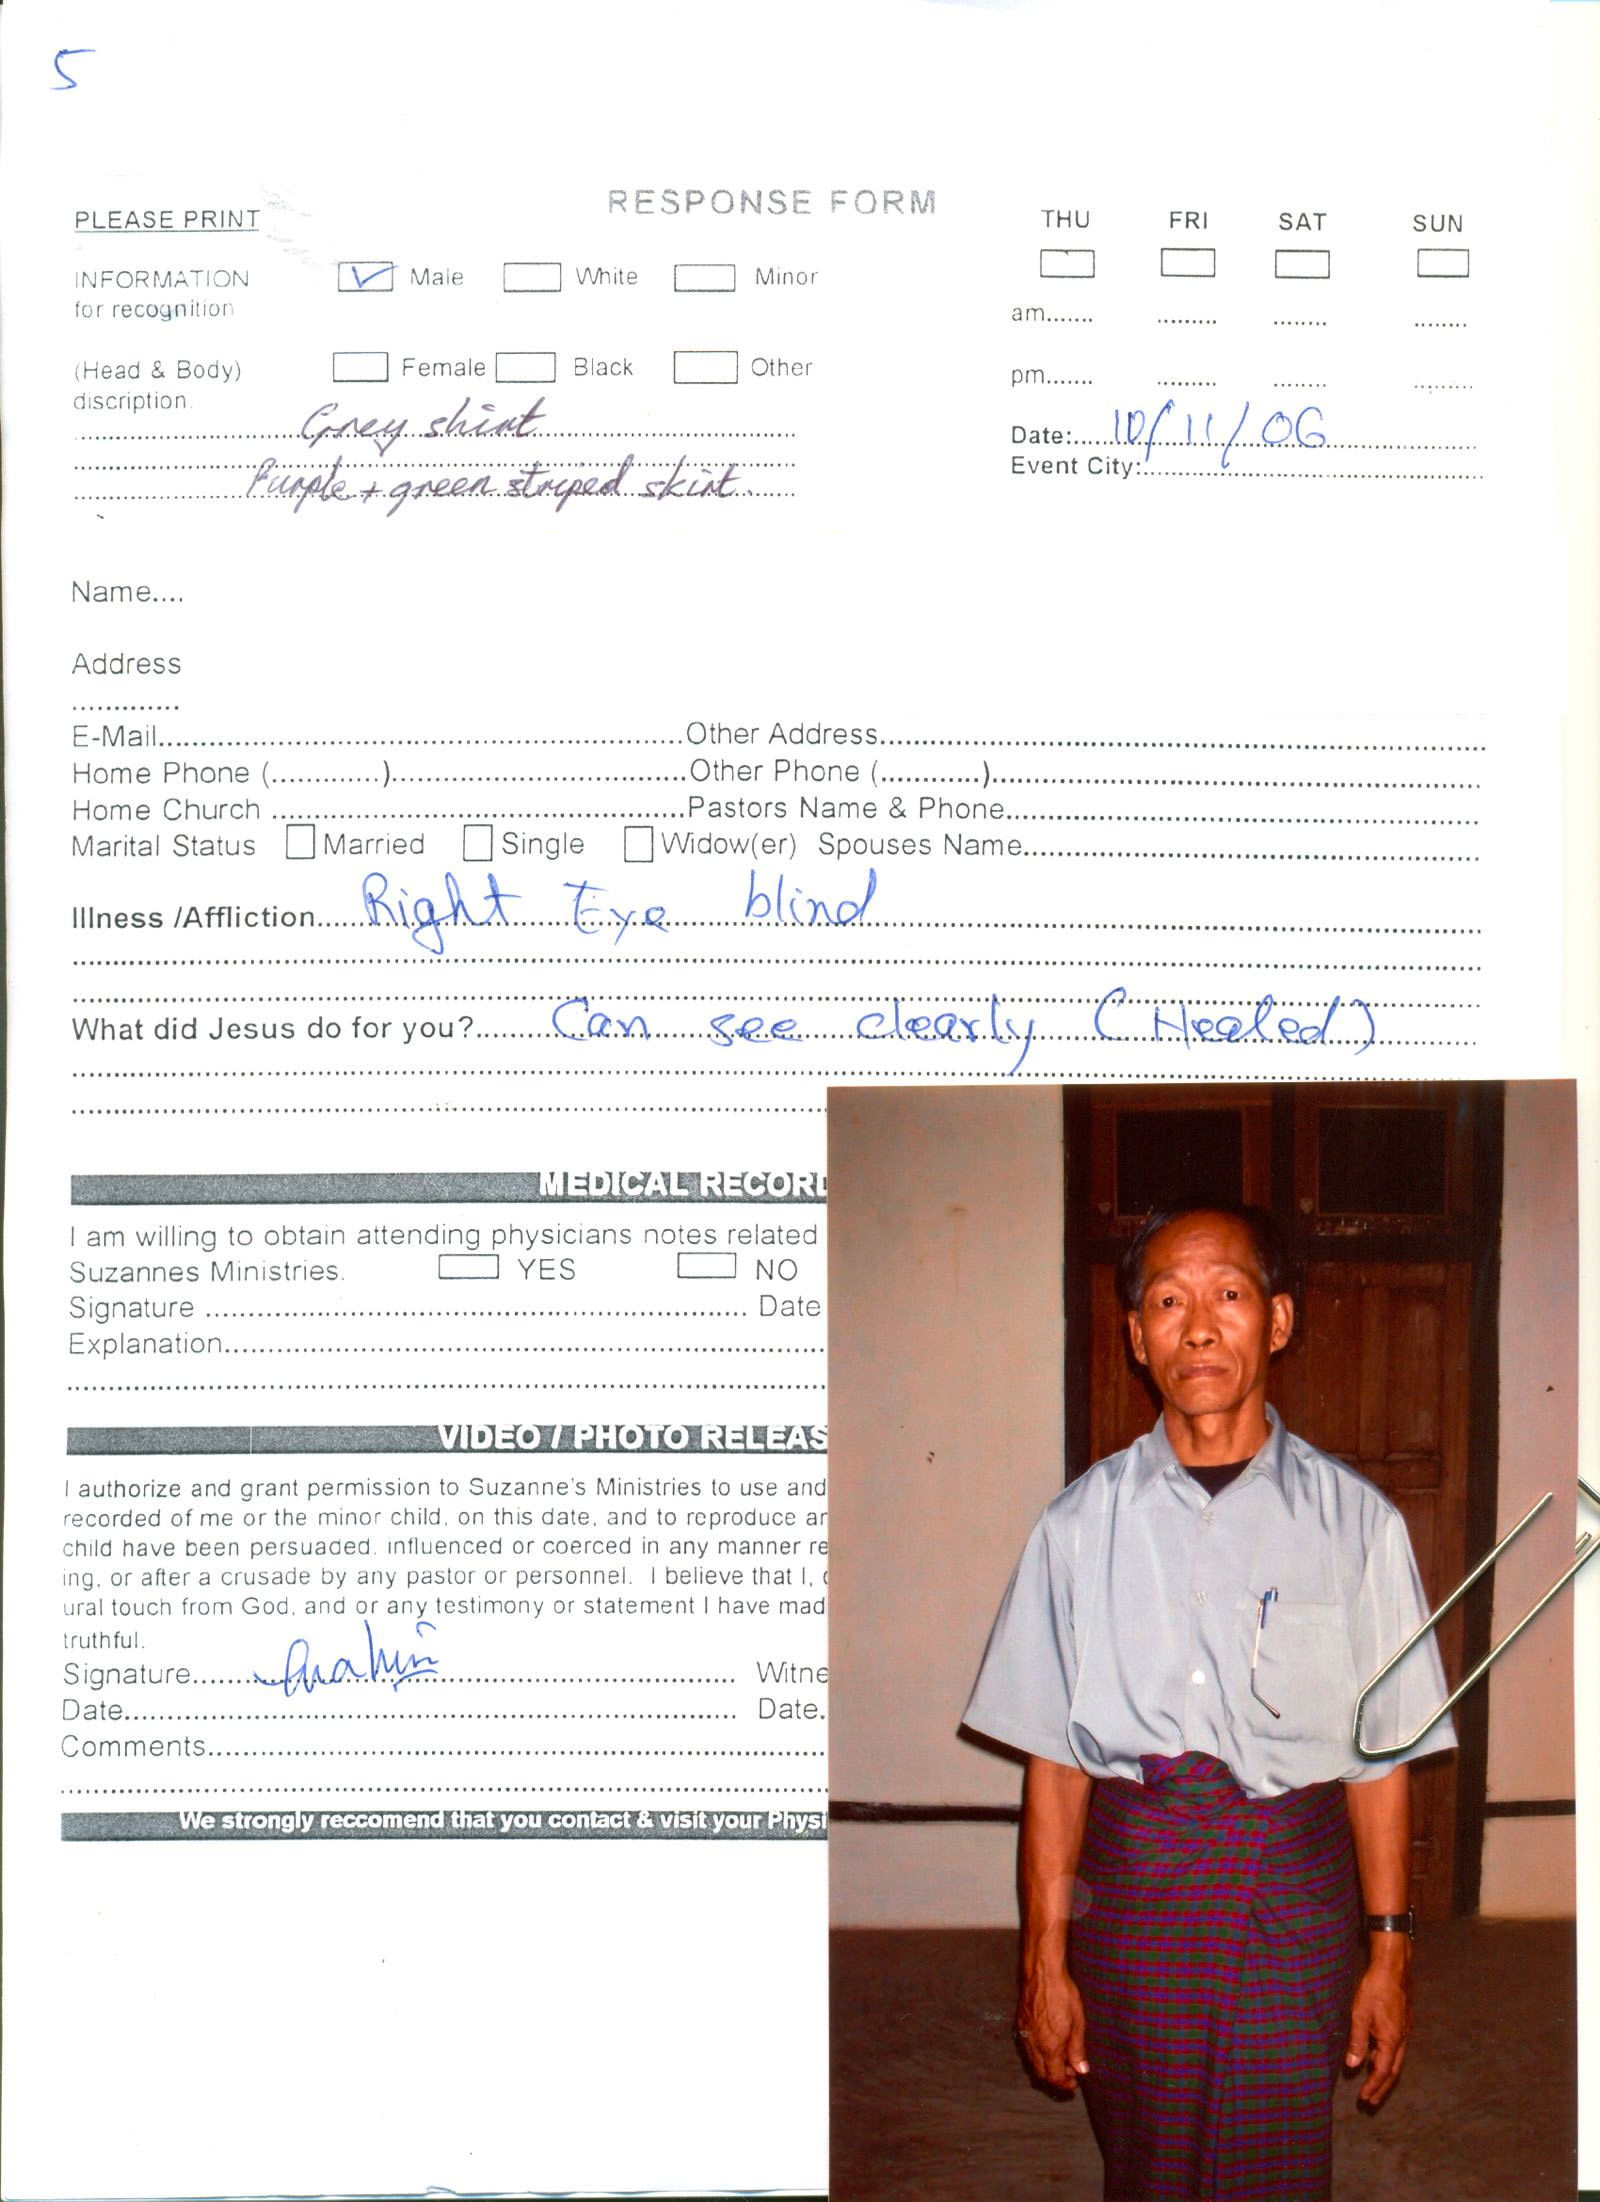 5
RESPONSE FORM
PLEASE PRINT
THU FRI SAT SUN
INFORMATION
for recognition
Male White Minor
am....... ......... ........ ........
(Head & Body)
discription.
Female Black Other
pm....... ......... ........ .........
Grey shirt
Purple + green striped skirt.
Date:....10/11/06
Event City:
Name....
Address
.............
E-Mail Other Address
Home Phone (.............) Other Phone (............)
Home Church Pastors Name & Phone
Marital Status Married Single Widow(er) Spouses Name
Illness /Affliction Right Eye blind
What did Jesus do for you? Can see clearly (Healed)
MEDICAL RECOR
I am willing to obtain attending physicians notes related
Suzannes Ministries. YES NO
Signature Date
Explanation
VIDEO / PHOTO RELEAS
I authorize and grant permission to Suzanne's Ministries to use and
recorded of me or the minor child, on this date, and to reproduce ar
child have been persuaded, influenced or coerced in any manner re
ing, or after a crusade by any pastor or personnel. I believe that I,
ural touch from God, and or any testimony or statement I have mad
truthful.
Signature Witne
Date Date.
Comments
We strongly reccomend that you contact & visit your Physi